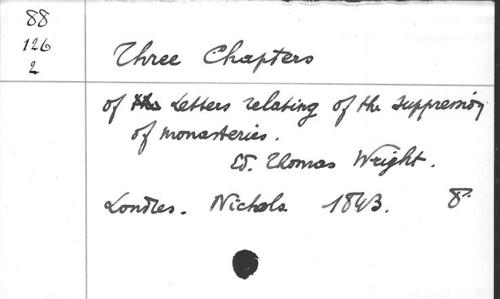 88
126
2
Three Chapters
of the Letters relating of the suppression
of monasteries.
Ed. Thomas Wright.
Londres. Nichols 1843. 8°